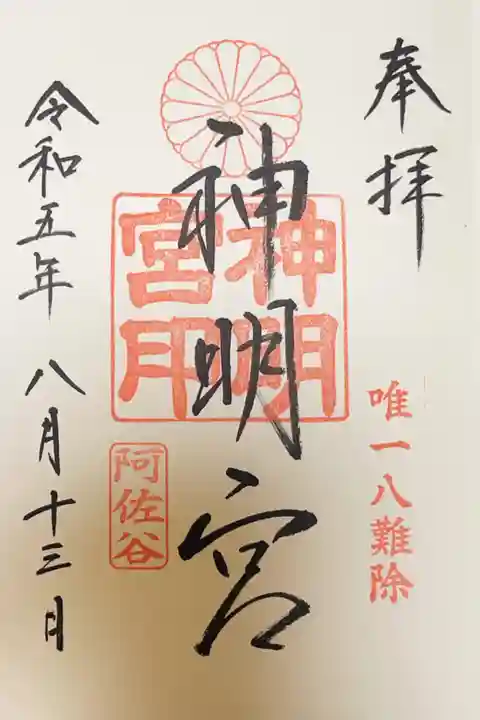 奉拝
唯一八難除
神明宮
神明宮印
阿佐谷
令和五年 八月十三日